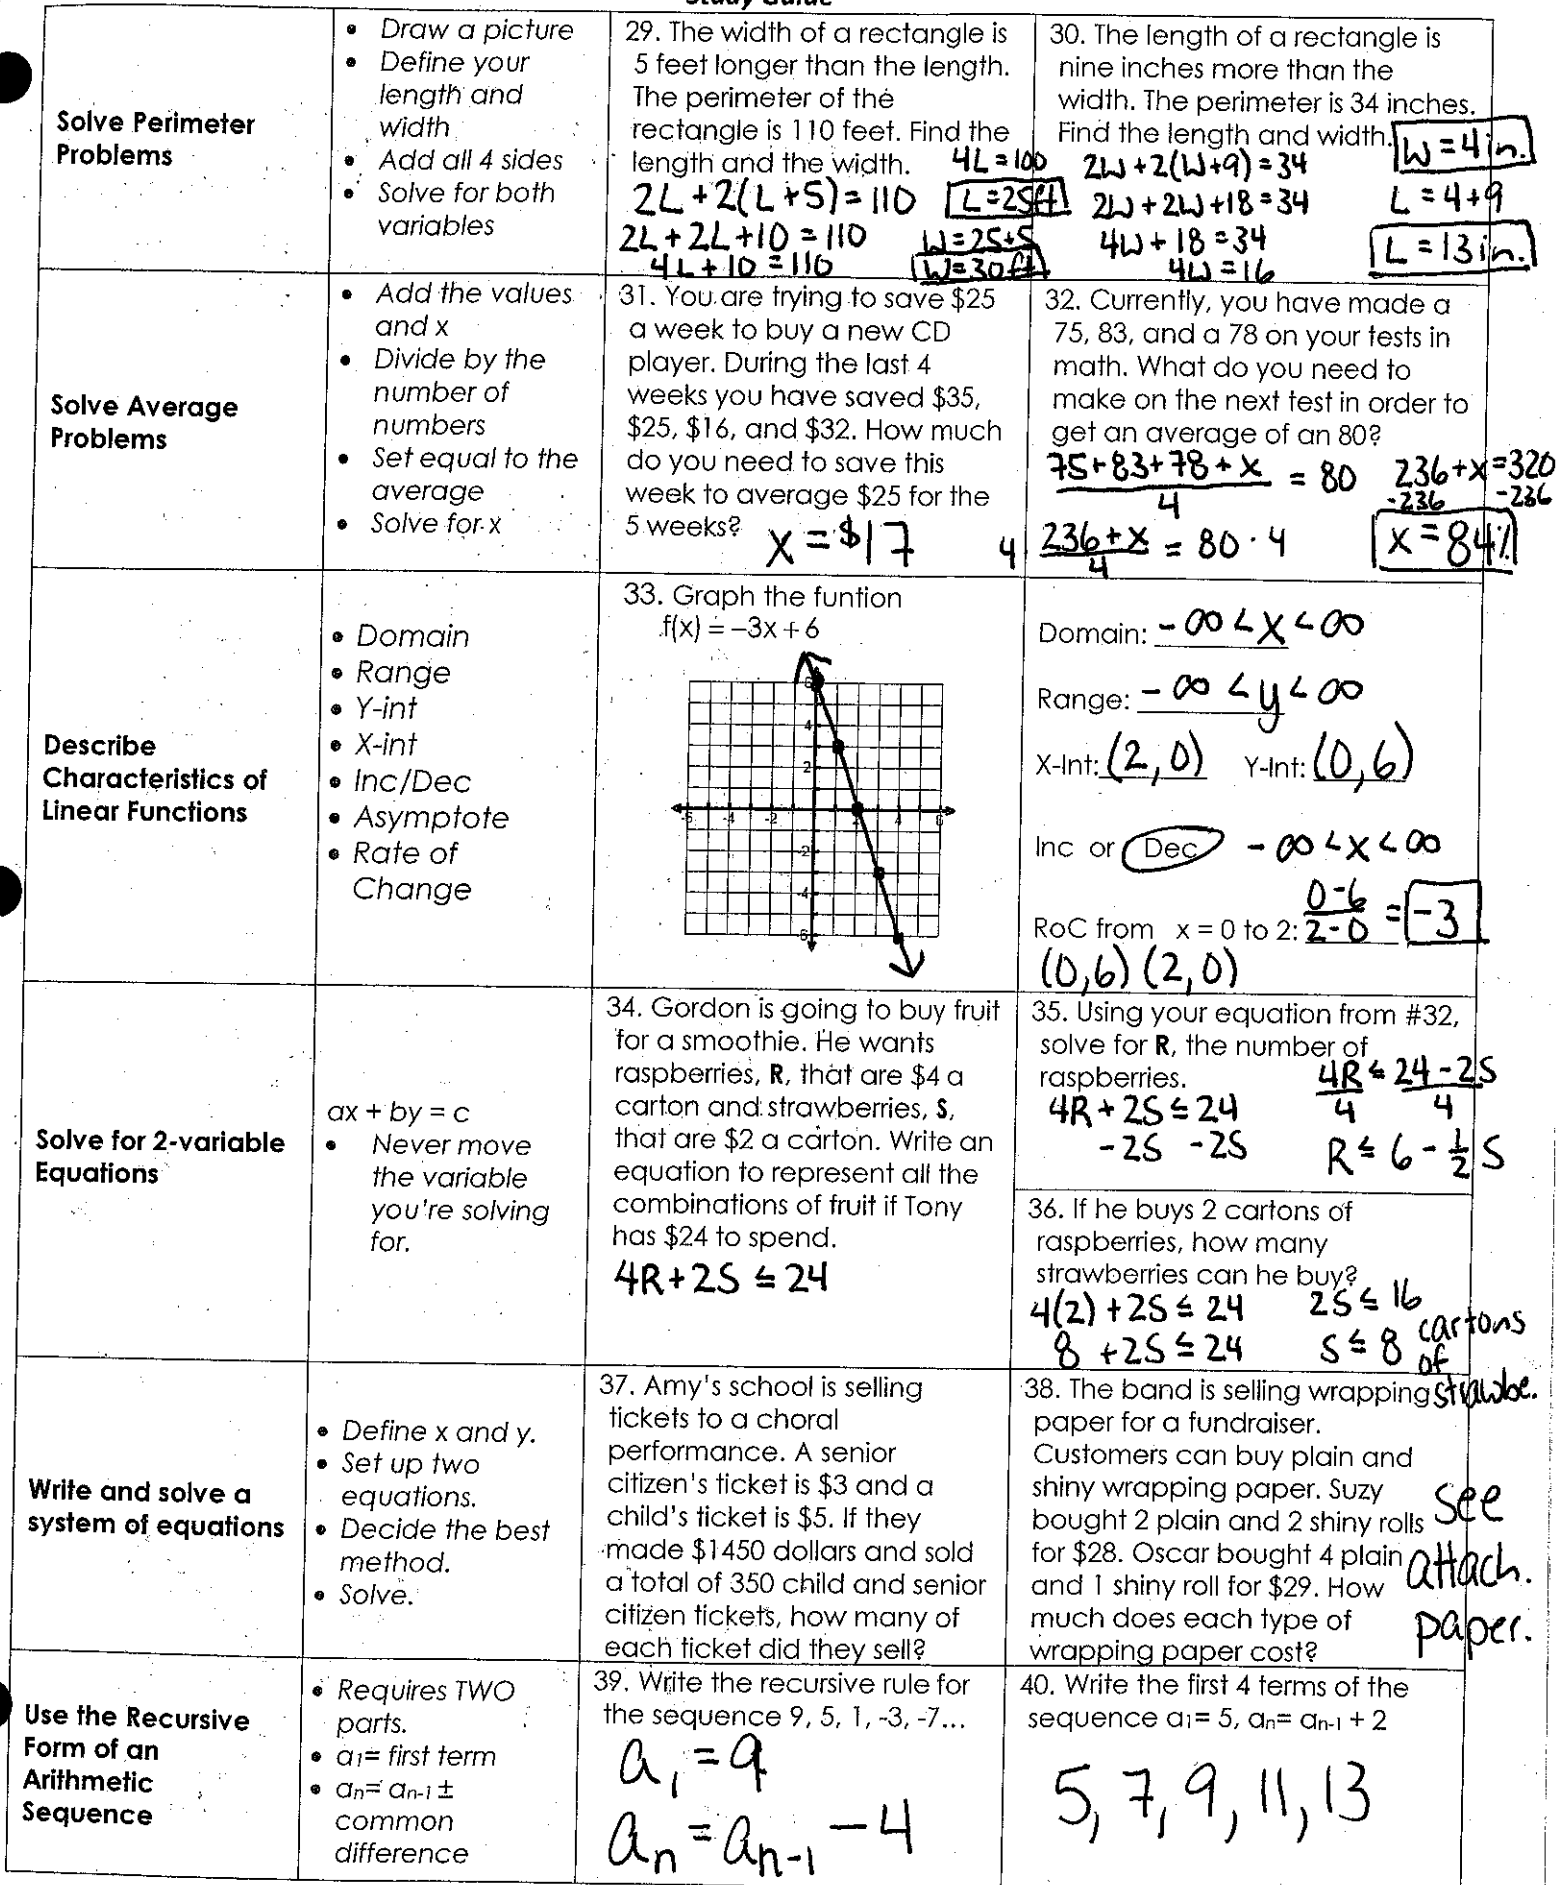 Study Guide
Solve Perimeter
Problems
• Draw a picture
• Define your
length and
width
• Add all 4 sides
• Solve for both
variables
29. The width of a rectangle is
5 feet longer than the length.
The perimeter of the
rectangle is 110 feet. Find the
length and the width.
4L=100
2L+2(L+5)=110
L=25ft
2L+2L+10=110
W=25+5
4L+10=110
W=30ft
30. The length of a rectangle is
nine inches more than the
width. The perimeter is 34 inches.
Find the length and width.
W=4in.
2W+2(W+9)=34
2W+2W+18=34
L=4+9
4W+18=34
L=13in.
4W=16
Solve Average
Problems
• Add the values
and x
• Divide by the
number of
numbers
• Set equal to the
average
• Solve for x
31. You are trying to save $25
a week to buy a new CD
player. During the last 4
weeks you have saved $35,
$25, $16, and $32. How much
do you need to save this
week to average $25 for the
5 weeks?
x=$17
32. Currently, you have made a
75, 83, and a 78 on your tests in
math. What do you need to
make on the next test in order to
get an average of an 80?
75+83+78+x
4
= 80
236+x=320
-236 -236
4
236+x
4
= 80·4
x=84%
Describe
Characteristics of
Linear Functions
• Domain
• Range
• Y-int
• X-int
• Inc/Dec
• Asymptote
• Rate of
Change
33. Graph the funtion
f(x) = –3x + 6
6
4
2
-6 -4 -2 2 4 6
-2
-4
-6
Domain: -∞<x<∞
Range: -∞<y<∞
X-Int: (2,0) Y-Int: (0,6)
Inc or Dec -∞<x<∞
RoC from x = 0 to 2: 0-6
2-0
= -3
(0,6) (2,0)
Solve for 2-variable
Equations
ax + by = c
• Never move
the variable
you're solving
for.
34. Gordon is going to buy fruit
for a smoothie. He wants
raspberries, R, that are $4 a
carton and strawberries, S,
that are $2 a carton. Write an
equation to represent all the
combinations of fruit if Tony
has $24 to spend.
4R+2S≤24
35. Using your equation from #32,
solve for R, the number of
raspberries.
4R+2S≤24
-2S -2S
4R≤24-2S
4 4
R≤6-½S
36. If he buys 2 cartons of
raspberries, how many
strawberries can he buy?
4(2)+2S≤24
8+2S≤24
2S≤16
S≤8 cartons
of
strawbe.
Write and solve a
system of equations
• Define x and y.
• Set up two
equations.
• Decide the best
method.
• Solve.
37. Amy's school is selling
tickets to a choral
performance. A senior
citizen's ticket is $3 and a
child's ticket is $5. If they
made $1450 dollars and sold
a total of 350 child and senior
citizen tickets, how many of
each ticket did they sell?
38. The band is selling wrapping
paper for a fundraiser.
Customers can buy plain and
shiny wrapping paper. Suzy
bought 2 plain and 2 shiny rolls
for $28. Oscar bought 4 plain
and 1 shiny roll for $29. How
much does each type of
wrapping paper cost?
see
attach.
paper.
Use the Recursive
Form of an
Arithmetic
Sequence
• Requires TWO
parts.
• a1= first term
• an= an-1 ±
common
difference
39. Write the recursive rule for
the sequence 9, 5, 1, -3, -7...
a1=9
an=an-1-4
40. Write the first 4 terms of the
sequence a1= 5, an= an-1 + 2
5, 7, 9, 11, 13